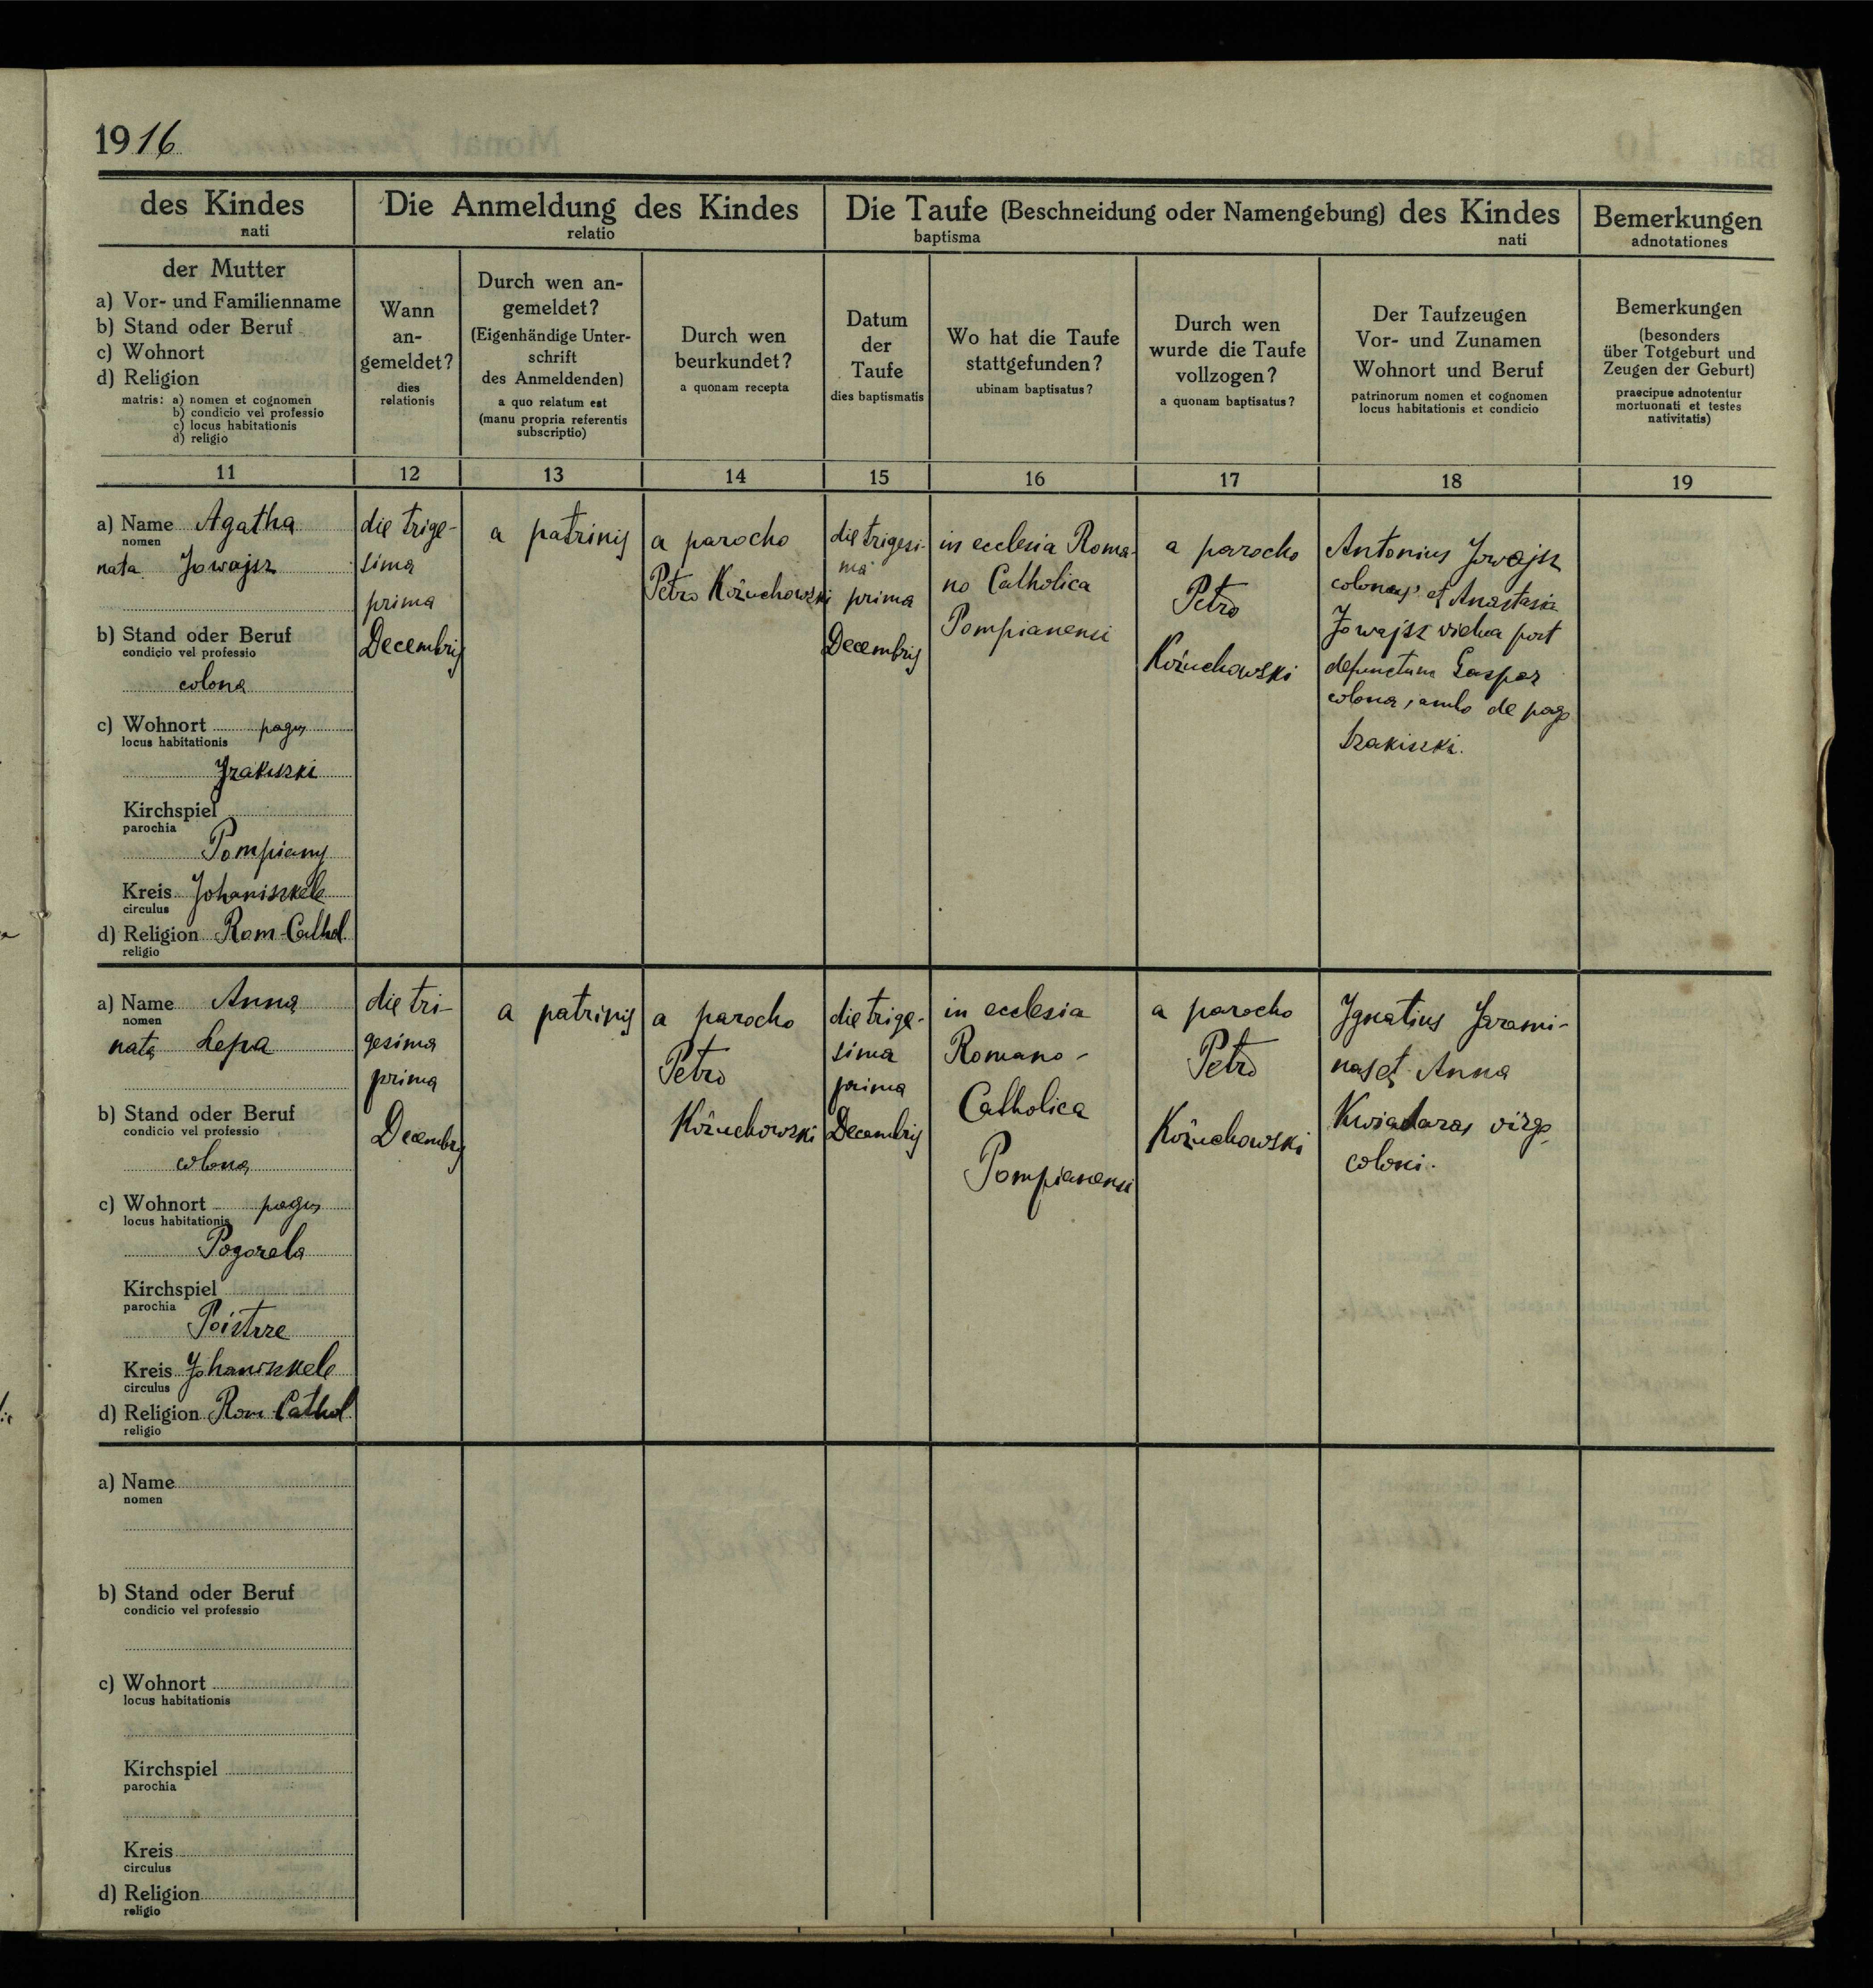 1916
des Kindes
nati
Die Anmeldung des Kindes
relatio
Die Taufe (Beschneidung oder Namengebung) des Kindes
baptisma nati
Bemerkungen
adnotationes
der Mutter
a) Vor- und Familienname
b) Stand oder Beruf
c) Wohnort
d) Religion
matris: a) nomen et cognomen
b) condicio vel professio
c) locus habitationis
d) religio
Wann
an-
gemeldet?
dies
relationis
Durch wen an-
gemeldet?
(Eigenhändige Unter-
schrift
des Anmeldenden)
a quo relatum est
(manu propria referentis
subscriptio)
Durch wen
beurkundet?
a quonam recepta
Datum
der
Taufe
dies baptismatis
Wo hat die Taufe
stattgefunden?
ubinam baptisatus?
Durch wen
wurde die Taufe
vollzogen?
a quonam baptisatus?
Der Taufzeugen
Vor- und Zunamen
Wohnort und Beruf
patrinorum nomen et cognomen
locus habitationis et condicio
Bemerkungen
(besonders
über Totgeburt und
Zeugen der Geburt)
praecipue adnotentur
mortuonati et testes
nativitatis)
11 12 13 14 15 16 17 18 19
a) Name Agatha
nomen
nata Jowajsz
b) Stand oder Beruf
condicio vel professio
colona
c) Wohnort pagus
locus habitationis
Jzakiszki
Kirchspiel
parochia
Pompiany
Kreis Johaniszkele
circulus
d) Religion Rom-Cathol.
religio
die trige-
sima
prima
Decembris
a patrinis
a parocho
Petro Kożuchowski
die trigesi-
ma
prima
Decembris
in ecclesia Roma-
no Catholica
Pompianensi
a parocho
Petro
Kożuchowski
Antonius Jowajsz
colonus et Anastasia
Jowajsz vidua post
defunctum Gaspar
colona, ambo de pago
Izakiszki.
a) Name Anna
nomen
nata Lepa
b) Stand oder Beruf
condicio vel professio
colona
c) Wohnort pagus
locus habitationis
Pogorela
Kirchspiel
parochia
Poistrze
Kreis Johaniszkele
circulus
d) Religion Rom-Cathol.
religio
die tri-
gesima
prima
Decembris
a patrinis
a parocho
Petro
Kożuchowski
die trige-
sima
prima
Decembris
in ecclesia
Romano-
Catholica
Pompianensi
a parocho
Petro
Kożuchowski
Ignatius Jarami-
nas et Anna
Kwiadaras virgo
coloni.
a) Name
nomen
b) Stand oder Beruf
condicio vel professio
c) Wohnort
locus habitationis
Kirchspiel
parochia
Kreis
circulus
d) Religion
religio